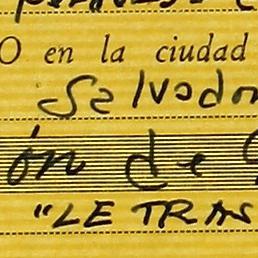 O en la ciudad
Salvador
ón de
"LETRAS